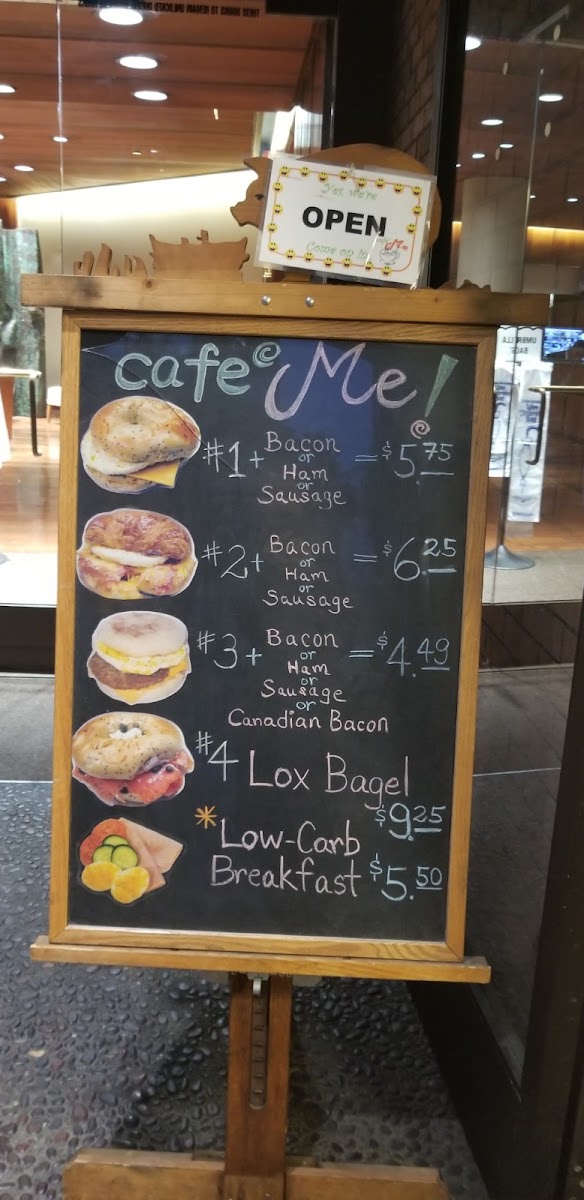 THESE DOORS TO REMAIN UNLOCKED DURING
Yes, we're
OPEN
Come on in
Me
cafe Me!
#1 + Bacon
or
Ham
or
Sausage
= $5.75
#2 + Bacon
or
Ham
or
Sausage
= $6.25
#3 + Bacon
or
Ham
or
Sausage
or
Canadian Bacon
= $4.49
#4 Lox Bagel
$9.25
*Low-Carb
Breakfast $5.50
UMBRELLA
BAGS